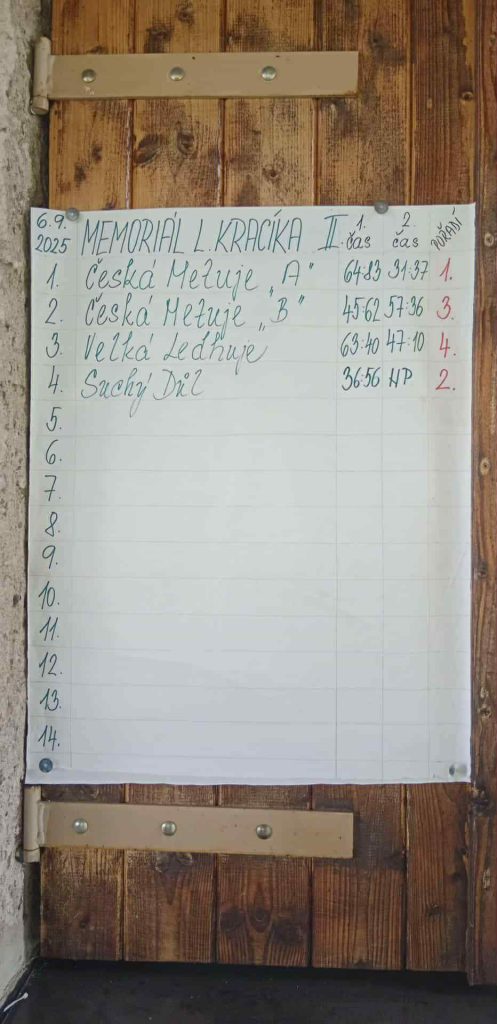 6.9. 2025 MEMORIÁL L. KRACÍKA II. 1. čas 2. čas POŘADÍ
1. Česká Metuje „A" 64:83 31:37 1.
2. Česká Metuje „B" 45:62 57:36 3.
3. Velká Ledhuje 63:40 47:10 4.
4. Suchý Důl 36:56 NP 2.
5.
6.
7.
8.
9.
10.
11.
12.
13.
14.